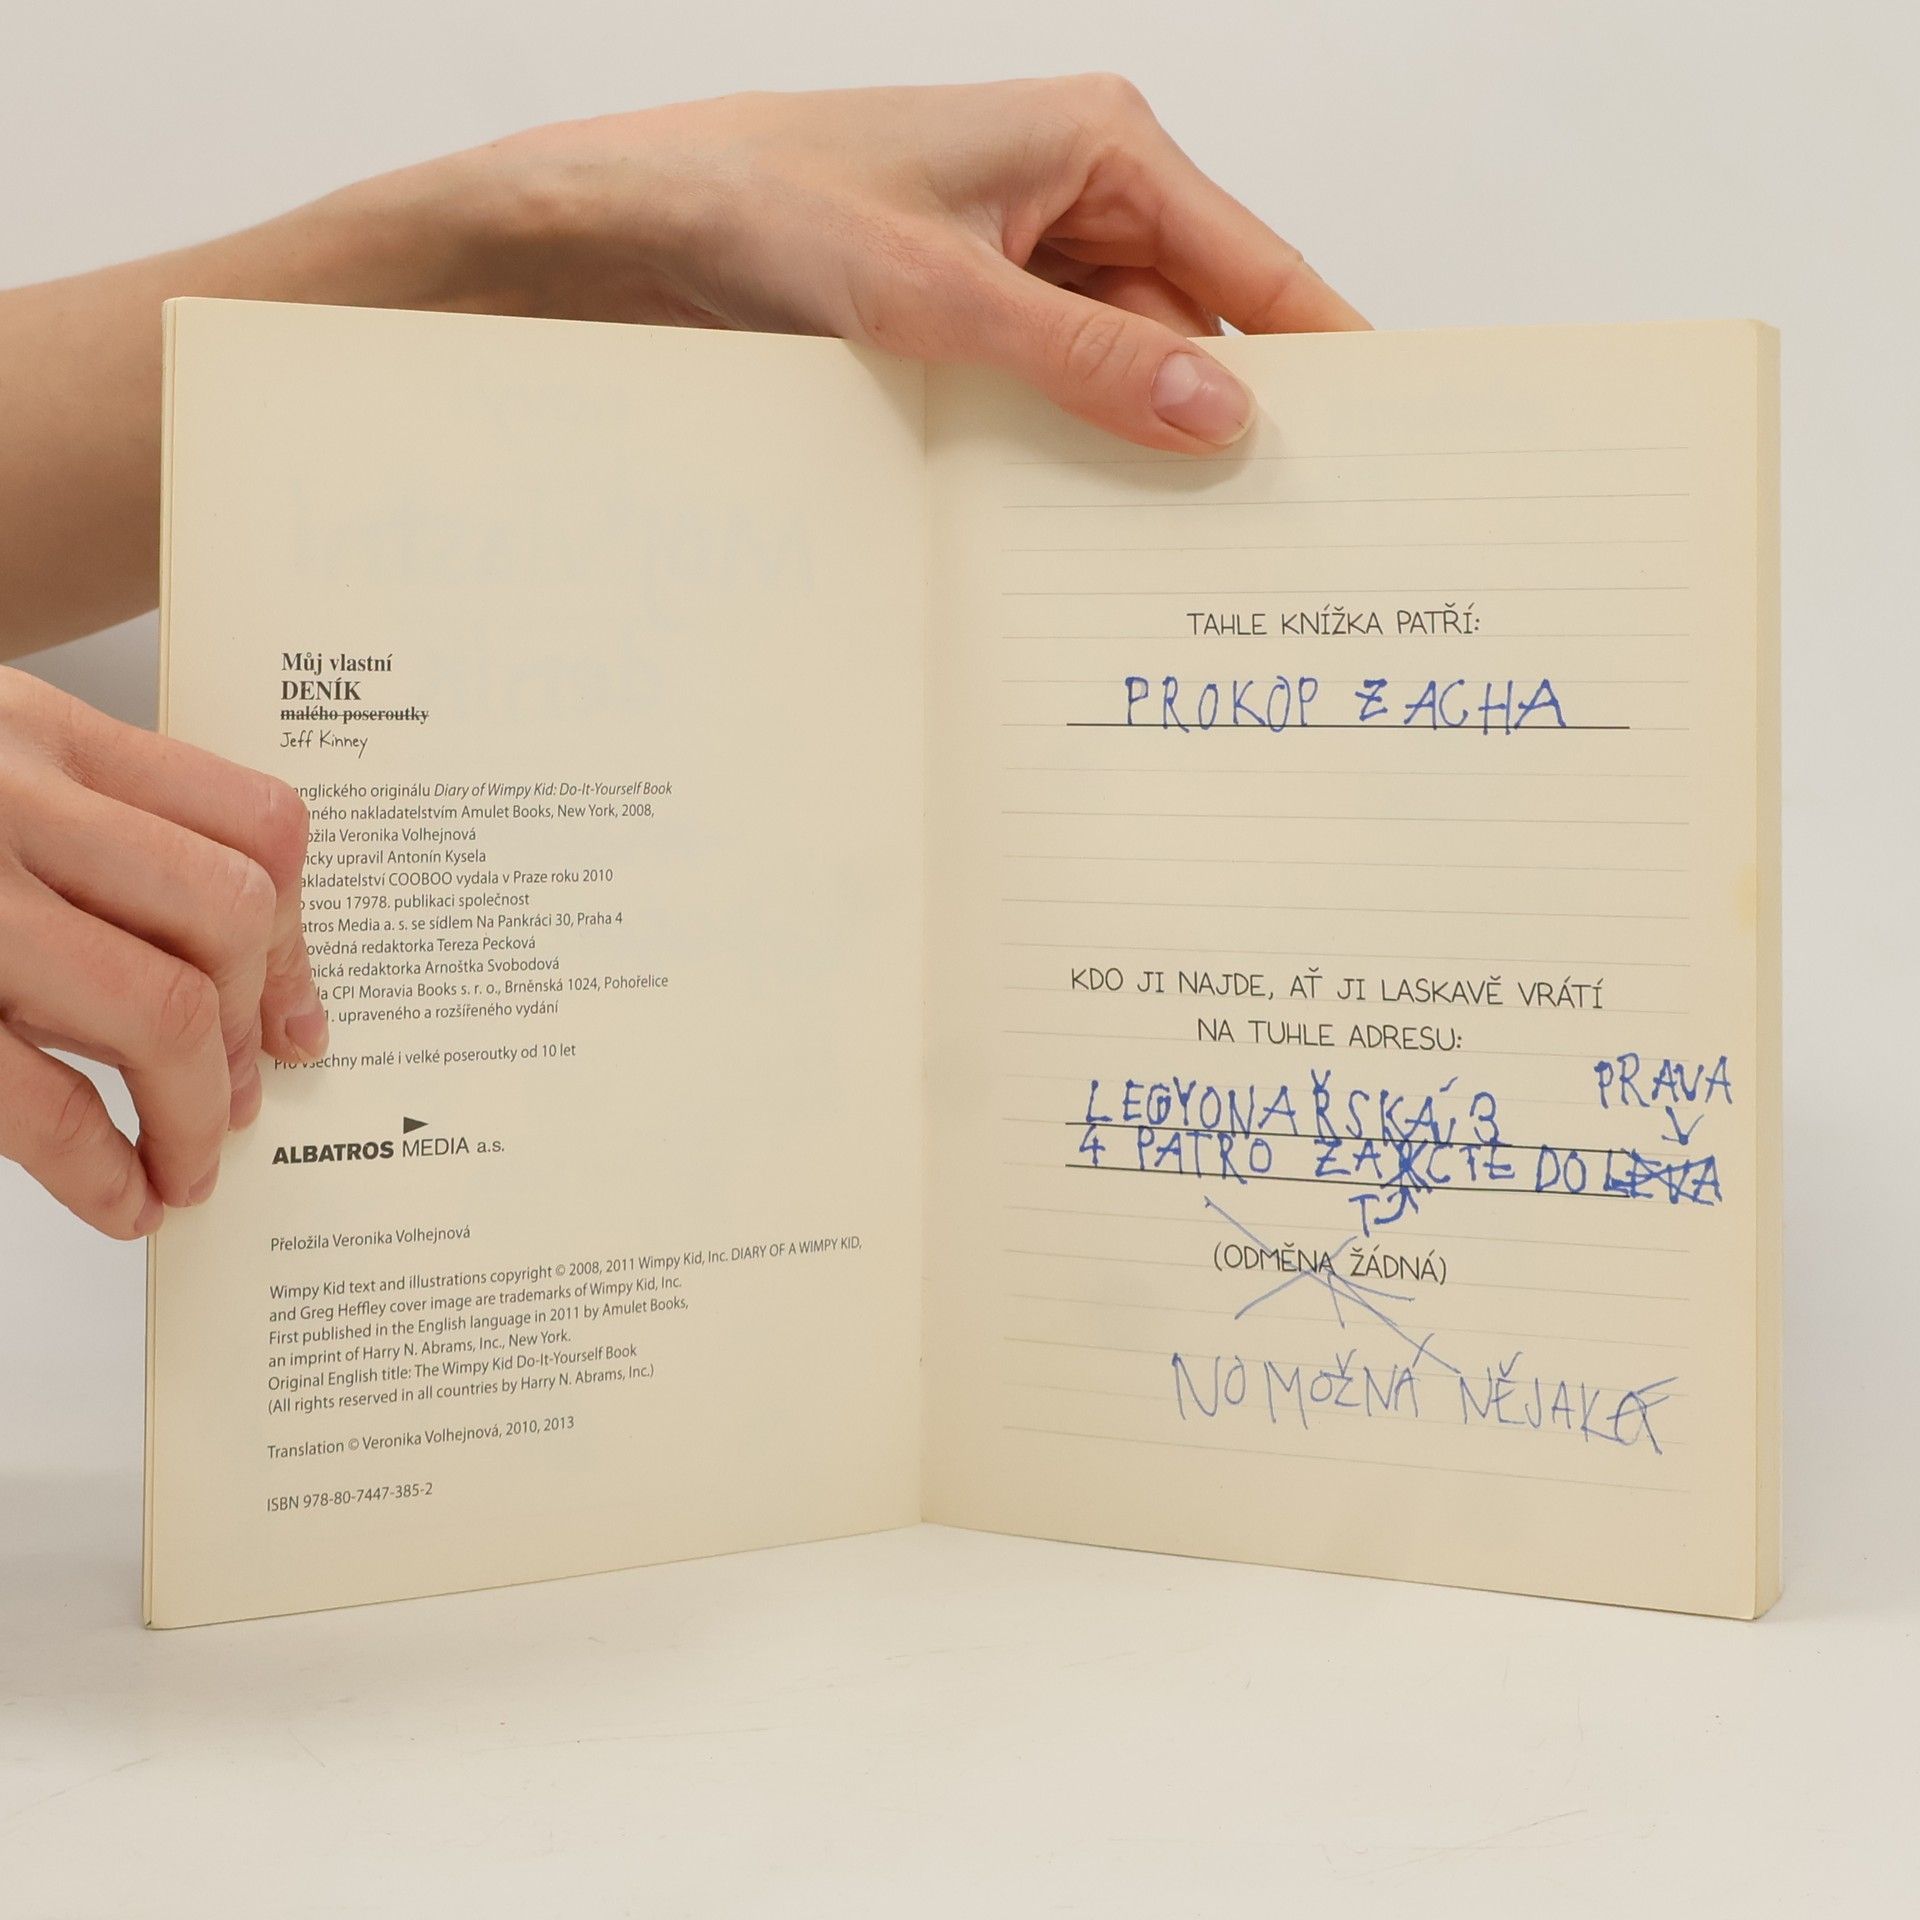 Můj vlastní
DENÍK
malého poseroutky
Jeff Kinney
anglického originálu Diary of Wimpy Kid: Do-It-Yourself Book
nakladatelstvím Amulet Books, New York, 2008,
Veronika Volhejnová
upravil Antonín Kysela
COOBOO vydala v Praze roku 2010
svou 17978. publikaci společnost
Media a. s. se sídlem Na Pankráci 30, Praha 4
redaktorka Tereza Pecková
redaktorka Arnoštka Svobodová
CPI Moravia Books s. r. o., Brněnská 1024, Pohořelice
1. upraveného a rozšířeného vydání
Pro všechny malé i velké poseroutky od 10 let
ALBATROS MEDIA a.s.
Přeložila Veronika Volhejnová
Wimpy Kid text and illustrations copyright © 2008, 2011 Wimpy Kid, Inc. DIARY OF A WIMPY KID,
and Greg Heffley cover image are trademarks of Wimpy Kid, Inc.
First published in the English language in 2011 by Amulet Books,
an imprint of Harry N. Abrams, Inc., New York.
Original English title: The Wimpy Kid Do-It-Yourself Book
(All rights reserved in all countries by Harry N. Abrams, Inc.)
Translation © Veronika Volhejnová, 2010, 2013
ISBN 978-80-7447-385-2
TAHLE KNÍŽKA PATŘÍ:
PROKOP ZACHA
KDO JI NAJDE, AŤ JI LASKAVĚ VRÁTÍ
NA TUHLE ADRESU:
PRAVA
LEGYONAŘSKÁ 3
4 PATRO DO LEVA
(ODMĚNA ŽÁDNÁ)
NO MOŽNÁ NĚJAKA